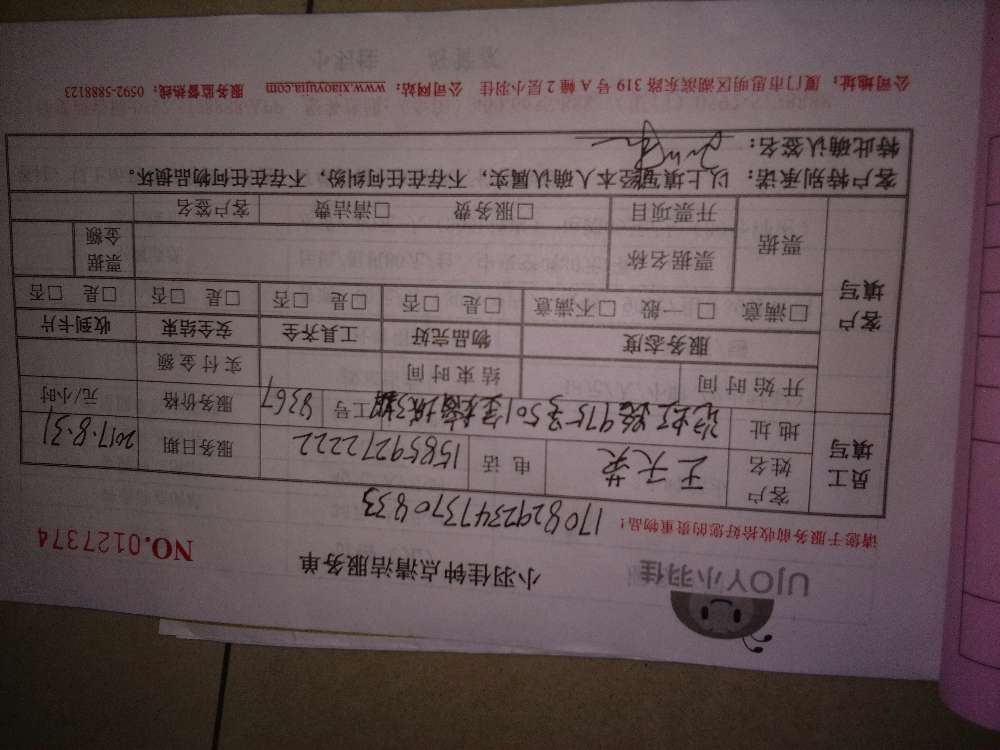 UJOY小羽佳
小羽佳钟点清洁服务单
NO.0127374
请您于服务前收拾好您的贵重物品！
1708292347370833
员工填写
客户姓名 王天英 电 话 15859272222 服务日期 2017.8.31
地 址 97号501 工号 8367 服务价格 元/小时
客户填写
开 始 时 间 结 束 时 间 实 付 金 额
服务态度 物品完好 工具齐全 安全结束 收到卡片
□满意 □一般 □不满意 □是 □否 □是 □否 □是 □否 □是 □否
票据 票据名称 票据金额
开票项目 □服务费 □清洁费 客户签名
客户特别承诺：以上填写经本人确认属实，不存在任何纠纷，不存在任何物品损坏。
特此确认签名：
公司地址：厦门市思明区湖滨东路319号A幢2层小羽佳 公司网站：www.xiaoyujia.com 服务监督热线：0592-5888123